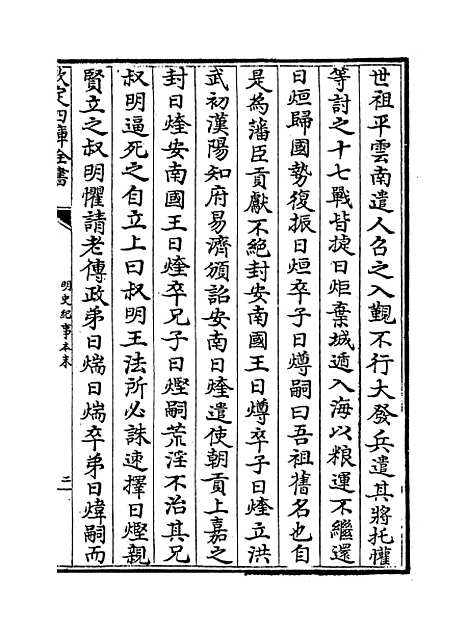 世祖平雲南遣人召之入覲不行大發兵遣其將托懽
等討之十七戰皆捷日炬棄城遁入海以粮運不繼還
日烜歸國勢復振日烜卒子日燇嗣曰吾祖舊名也自
是為藩臣貢獻不絶封安南國王日燇卒子日煃立洪
武初漢陽知府易濟頒詔安南日煃遣使朝貢上嘉之
封日煃安南國王日煃卒兄子日熞嗣荒淫不治其兄
叔明逼死之自立上曰叔明王法所必誅速擇日熞親
賢立之叔明懼請老傳政弟日煓日煓卒弟日煒嗣而
欽定四庫全書
明史紀事本末
二